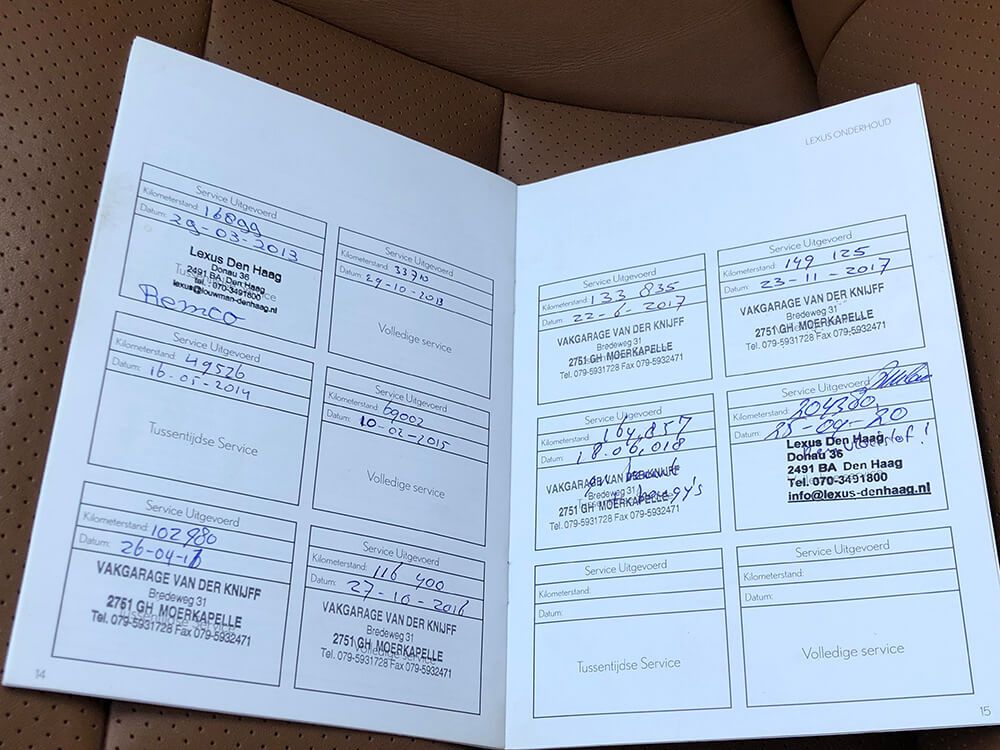 Service Uitgevoerd
Kilometerstand: 16899
Datum: 29-03-2013
Lexus Den Haag
Donau 36
2491 BA Den Haag
tel. 070-3491800
lexus@louwman-denhaag.nl
Remco
Service Uitgevoerd
Kilometerstand:
Datum: 29-10-2013
Volledige service
Service Uitgevoerd
Kilometerstand: 49526
Datum: 16-05-2014
Tussentijdse Service
Service Uitgevoerd
Kilometerstand: 69002
Datum: 10-02-2015
Volledige service
Service Uitgevoerd
Kilometerstand: 102980
Datum: 26-04-16
VAKGARAGE VAN DER KNIJFF
Bredeweg 31
2751 GH MOERKAPELLE
Tussentijdse Service
Tel. 079-5931728 Fax 079-5932471
Service Uitgevoerd
Kilometerstand: 116 400
Datum: 27-10-2016
VAKGARAGE VAN DER KNIJFF
Bredeweg 31
2751 GH MOERKAPELLE
Volledige service
Tel. 079-5931728 Fax 079-5932471
14
LEXUS ONDERHOUD
Service Uitgevoerd
Kilometerstand: 133 835
Datum: 22-6-2017
VAKGARAGE VAN DER KNIJFF
Bredeweg 31
2751 GH MOERKAPELLE
Tel. 079-5931728 Fax 079-5932471
Service Uitgevoerd
Kilometerstand: 149 125
Datum: 23-11-2017
VAKGARAGE VAN DER KNIJFF
Bredeweg 31
2751 GH MOERKAPELLE
Tel. 079-5931728 Fax 079-5932471
Service Uitgevoerd
Kilometerstand: 164,857
Datum: 18.06,018
VAKGARAGE VAN DER KNIJFF
Bredeweg 31
2751 GH MOERKAPELLE
Tel. 079-5931728 Fax 079-5932471
Service Uitgevoerd
Kilometerstand: 204380
Datum: 25-09-20
Lexus Den Haag
Donau 36
2491 BA Den Haag
Tel. 070-3491800
info@lexus-denhaag.nl
Service Uitgevoerd
Kilometerstand:
Datum:
Tussentijdse Service
Service Uitgevoerd
Kilometerstand:
Datum:
Volledige service
15